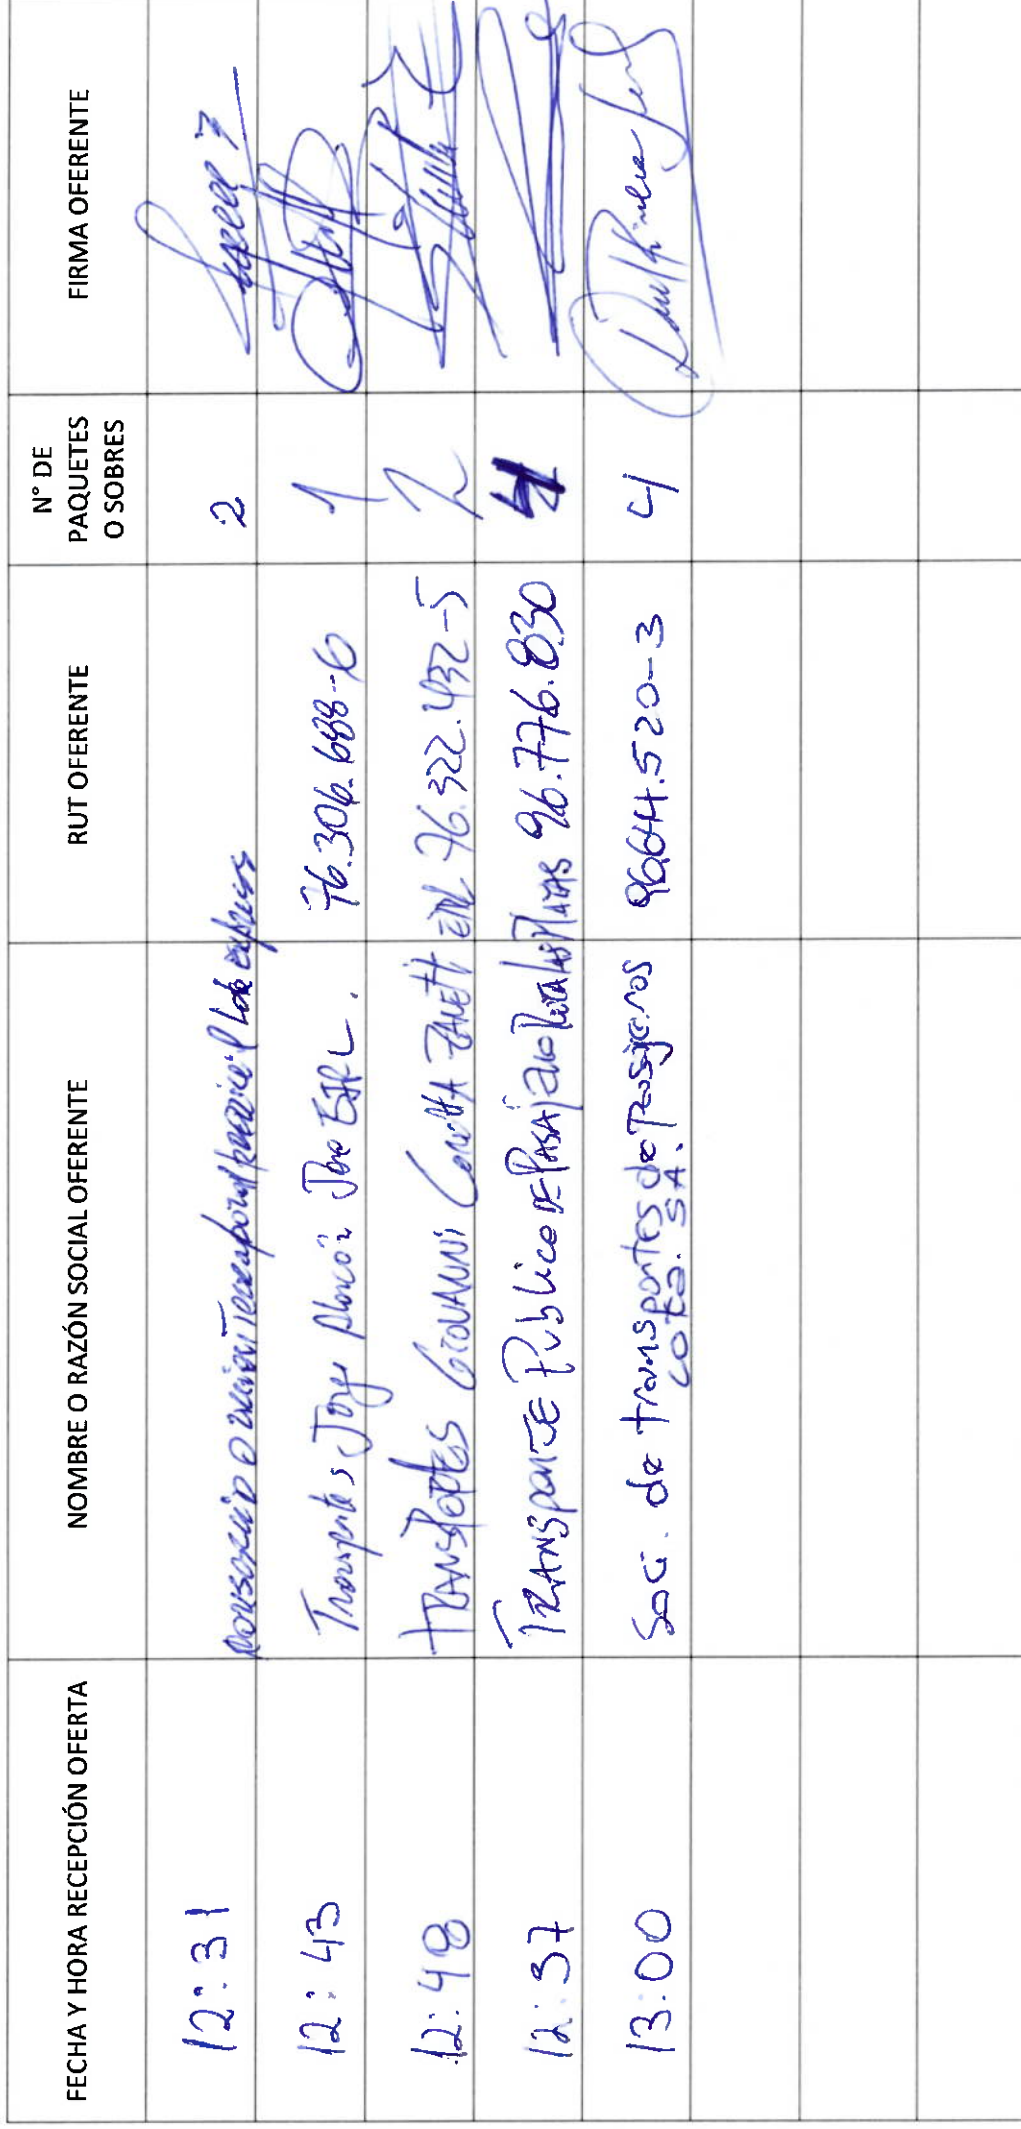 FECHA Y HORA RECEPCIÓN OFERTA NOMBRE O RAZÓN SOCIAL OFERENTE RUT OFERENTE N° DE PAQUETES O SOBRES FIRMA OFERENTE
12:31 2
12:43 Transportes Jorge Alarcón Jara EIRL. 76.306.688-6 1
12:48 TRANSPORTES GIOVANNI CONCHA ZANETTI 76.322.432-5 2
12:37 TRANSPORTE PUBLICO DE PASAJEROS RUTA LAS PLAYAS 96.776.830 4
13:00 Soci. de transportes de Pasajeros 96.644.520-3 4
S.A.